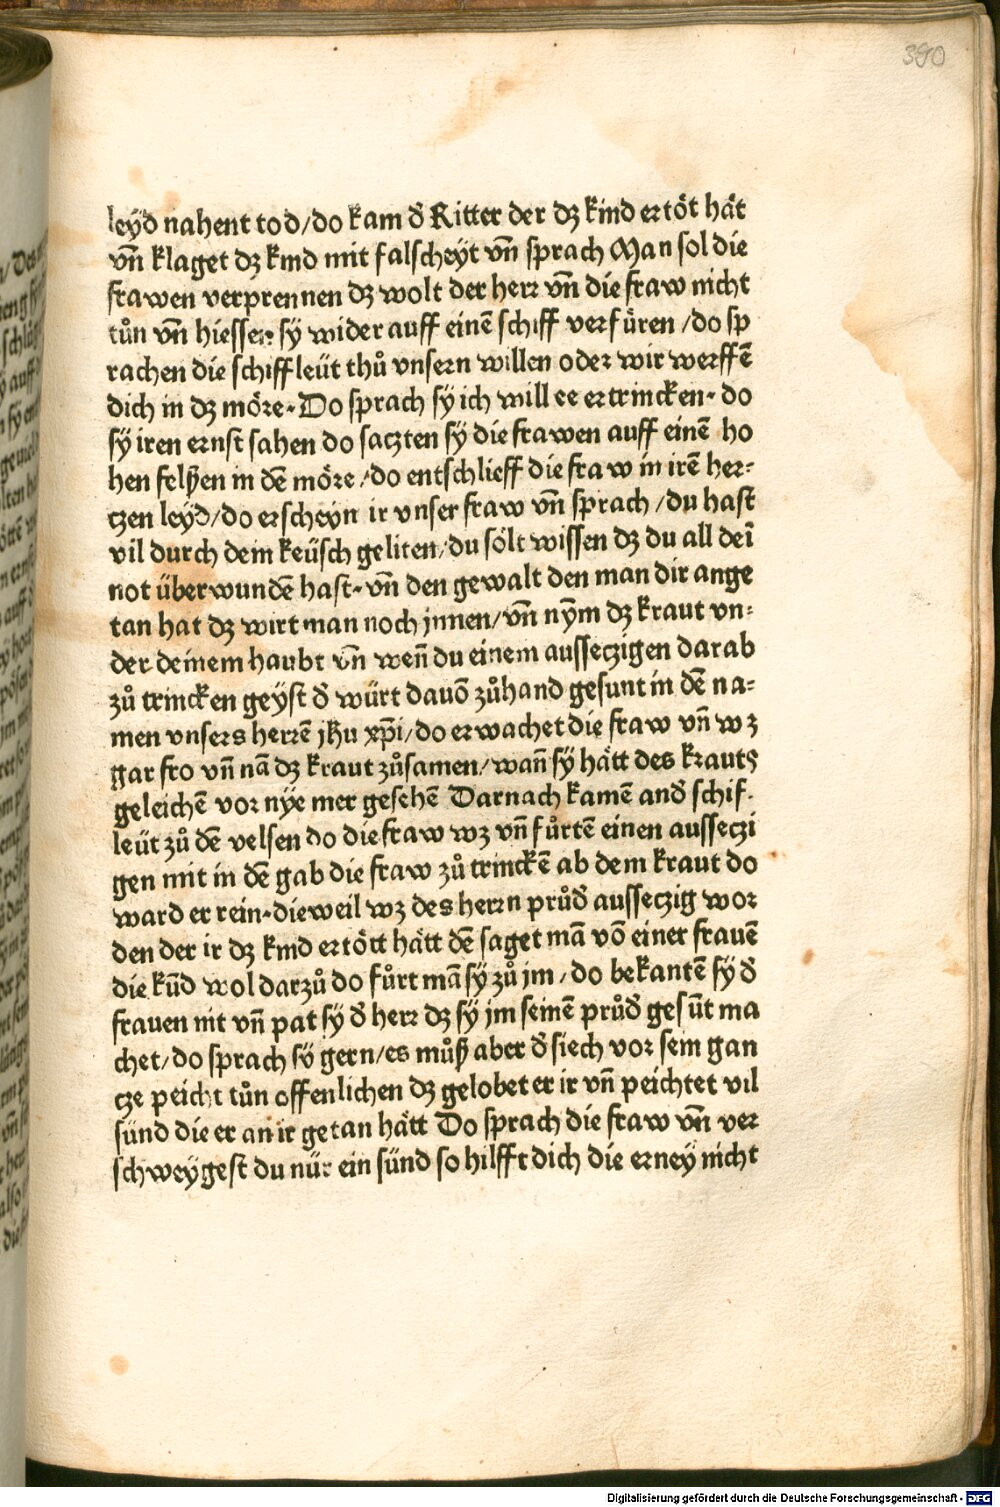 390
leÿd nahent tod/do kam đ Ritter der dʒ kind ertöt hät
vn̄ klaget dʒ kind mit falscheÿt vn̄ sprach Man sol die
frawen verprennen dʒ wolt der herr vn̄ die fraw nicht
tůn vn̄ hiessen sÿ wider auff einē schiff verfüren /do sp
rachen die schiffleüt thů vnsern willen oder wir werffē
dich in dʒ möre. Do sprach sÿ ich will ee ertrincken. do
sÿ iren ernst sahen do saczten sÿ die frawen auff einē ho
hen felßen in dē möre /do entschlieff die fraw in irē her⸗
czen leÿd/do erscheÿn ir vnser fraw vn̄ sprach /du hast
vil durch dein keüsch geliten/du sölt wissen dʒ du all dei̅
not überwundē hast. vn̄ den gewalt den man dir ange
tan hat dʒ wirt man noch jnnen/vn̄ nÿm dʒ kraut vn⸗
der deinem haubt vn̄ wen̄ du einem ausseczigen darab
zů trincken geÿst đ würt davō zůhand gesunt in dē na⸗
men vnsers herrē jhu xp̄i/do erwachet die fraw vn̄ wʒ
gar fro vn̄ nā dʒ kraut zůsamen/wan̄ sÿ hätt des krauts
geleichē vor nÿe mer gesehē Darnach kamē anđ schif⸗
leüt zů dē velsen do die fraw wʒ vn̄ fůrtē einen ausseczi
gen mit in dē gab die fraw zů trinckē ab dem kraut do
ward er rein. dieweil wʒ des herrn průđ aussеczig wor
den der ir dʒ kind ertött hätt dē saget mā vō einer frauē
die kūd wol darzů do fůrt mā sÿ zů jm /do bekantē sÿ đ
frauen nit vn̄ pat sÿ đ herr dʒ sÿ jm seinē průđ gesūt ma
chet/do sprach sÿ gern/es můß aber đ siech vor sein gan
cze peicht tůn offenlichen dʒ gelobet er ir vn̄ peichtet vil
sünd die er an ir getan hätt Do sprach die fraw vn̄ ver
schweÿgest du nür ein sünd so hilfft dich die erneÿ nicht
Digitalisierung gefördert durch die Deutsche Forschungsgemeinschaft - DFG